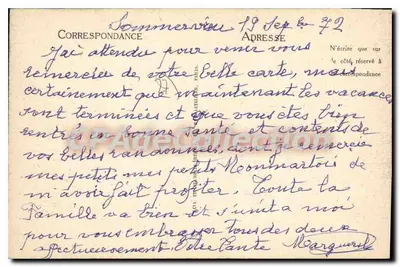 Sommervieu 19 Sep bre 72
CORRESPONDANCE
ADRESSE
J'ai attendu pour venir vous
N'écrite que sur
le côté réservé à
remercier de votre belle carte, mais
correspondance
certainement que maintenant les vacances
sont terminées et que vous êtes bien
entré en bonne santé et contents de
vos belles randonnées, dont je remercie
mes petits mes petits Monmartois de
m'avoir fait profiter. Toute la
Famille va bien et s'unit a moi
pour vous embrasser tous des deux
affectueusement. Votre tante Marguerite